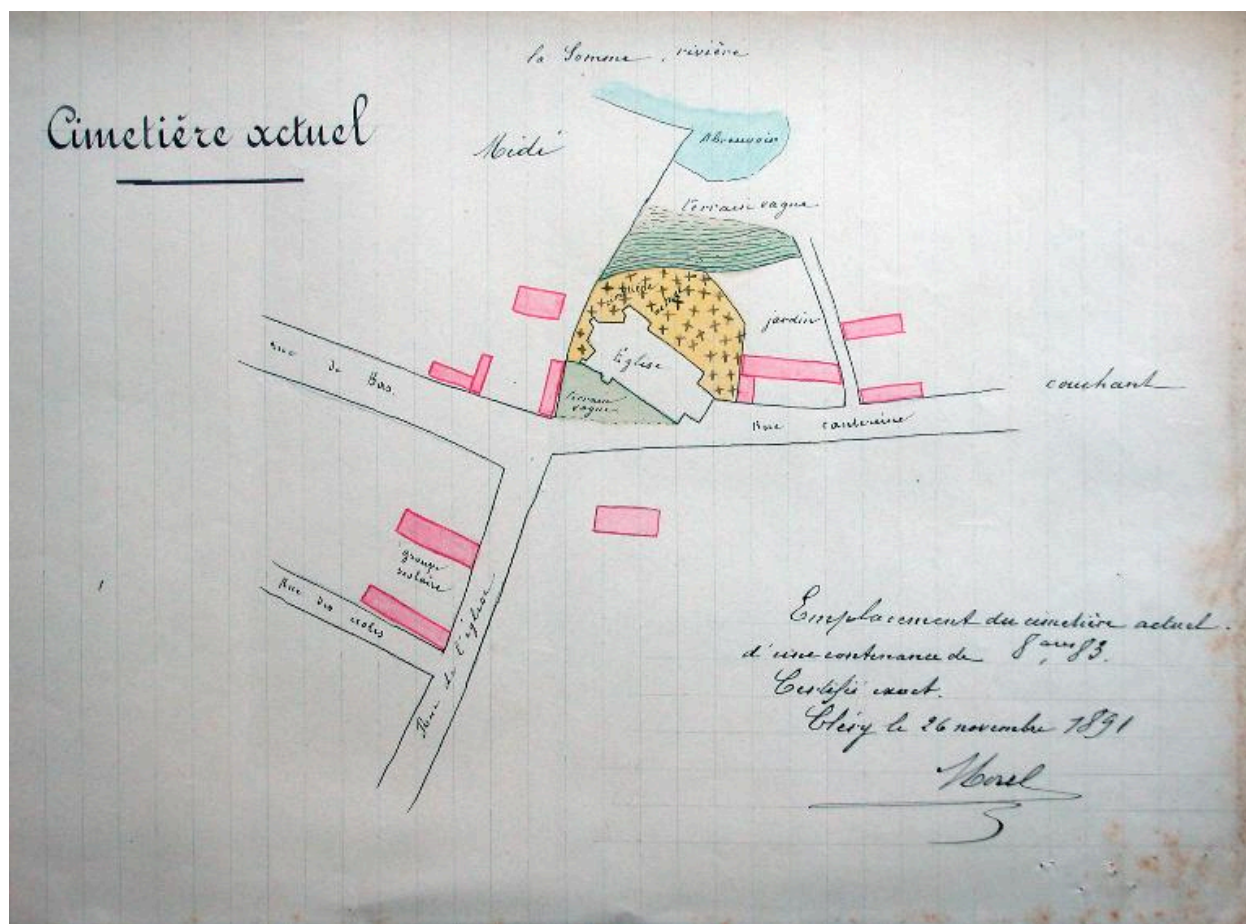 la Somme, rivière
Cimetière actuel
Midi
Abreuvoir
terrain vague
cimetière
actuel
jardin
Eglise
rue de Bas.
terrain
vague
couchant
Rue cantereine
groupe
scolaire
Rue des écoles
Rue de l'église
Emplacement du cimetière actuel.
d'une contenance de 8 ares 83.
Certifié exact.
Cléry le 26 novembre 1891
Morel